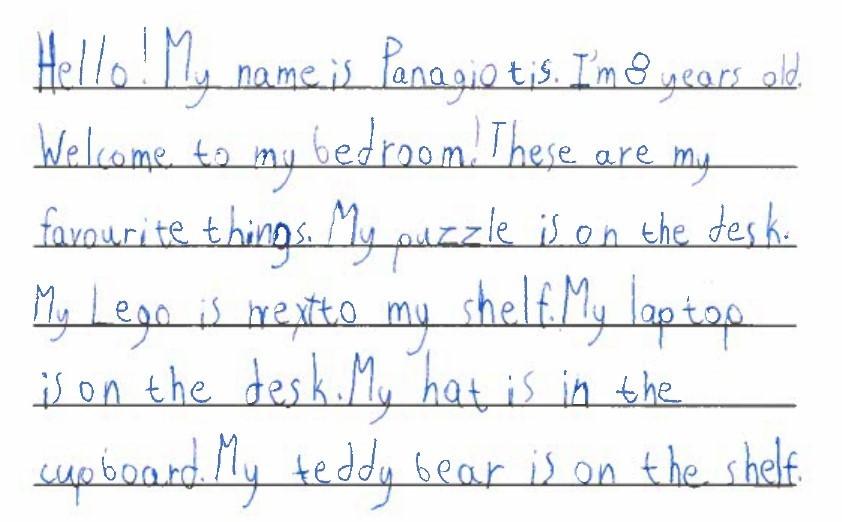 Hello! My name is Panagiotis. I'm 8 years old.
Welcome to my bedroom! These are my
favourite things. My puzzle is on the desk.
My Lego is next to my shelf. My laptop
is on the desk. My hat is in the
cupboard. My teddy bear is on the shelf.